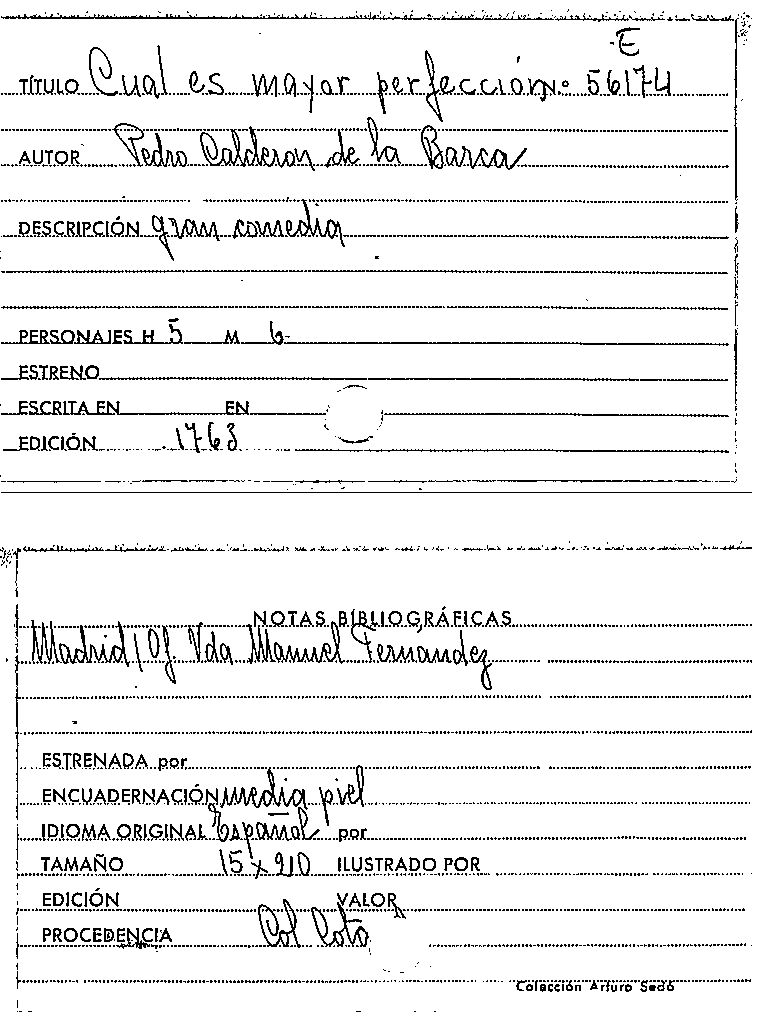 E
TÍTULO Cual es mayor perfección N.º 56174
AUTOR Pedro Calderon de la Barca
DESCRIPCIÓN gran comedia
PERSONAJES H 5 M 6
ESTRENO
ESCRITA EN EN
EDICIÓN 1763
NOTAS BIBLIOGRÁFICAS
Madrid / Of. Vda Manuel Fernandez
ESTRENADA por
ENCUADERNACIÓN media piel
IDIOMA ORIGINAL Español por
TAMAÑO 15 x 210 ILUSTRADO POR
EDICIÓN VALOR
PROCEDENCIA Col Coto
Colección Arturo Sedó